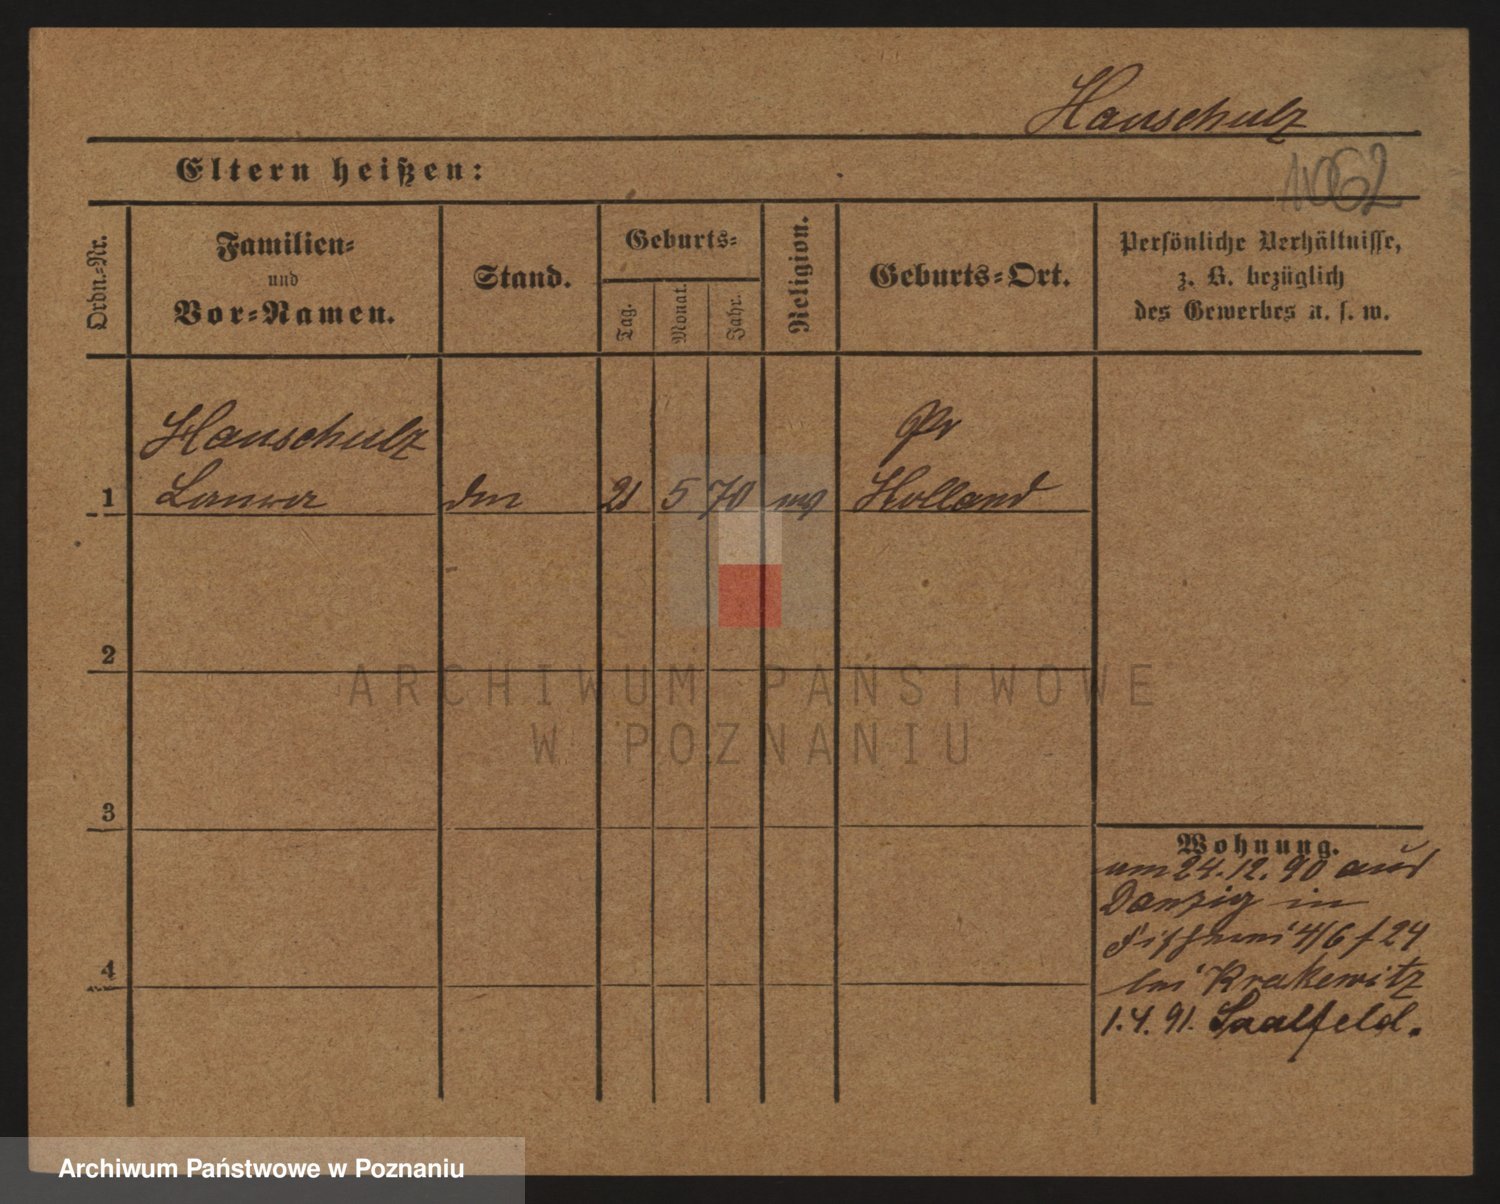 Hauschulz
1062
Eltern heißen:
Ordn.=Nr.
Familien=
und
Vor=Namen.
Stand.
Geburts=
Tag.
Monat.
Jahr.
Religion.
Geburts=Ort.
Persönliche Verhältnisse,
z. B. bezüglich
des Gewerbes u. s. w.
Hauschulz
Pr
1 Laura 21 5 70 Holland
2
ARCHIWUM PAŃSTWOWE
W POZNANIU
3
Wohnung.
am 24.12.90 aus
Danzig in
4/6 f 24
4
bei Krakewitz
1.4.91. Saalfeld.
Archiwum Państwowe w Poznaniu